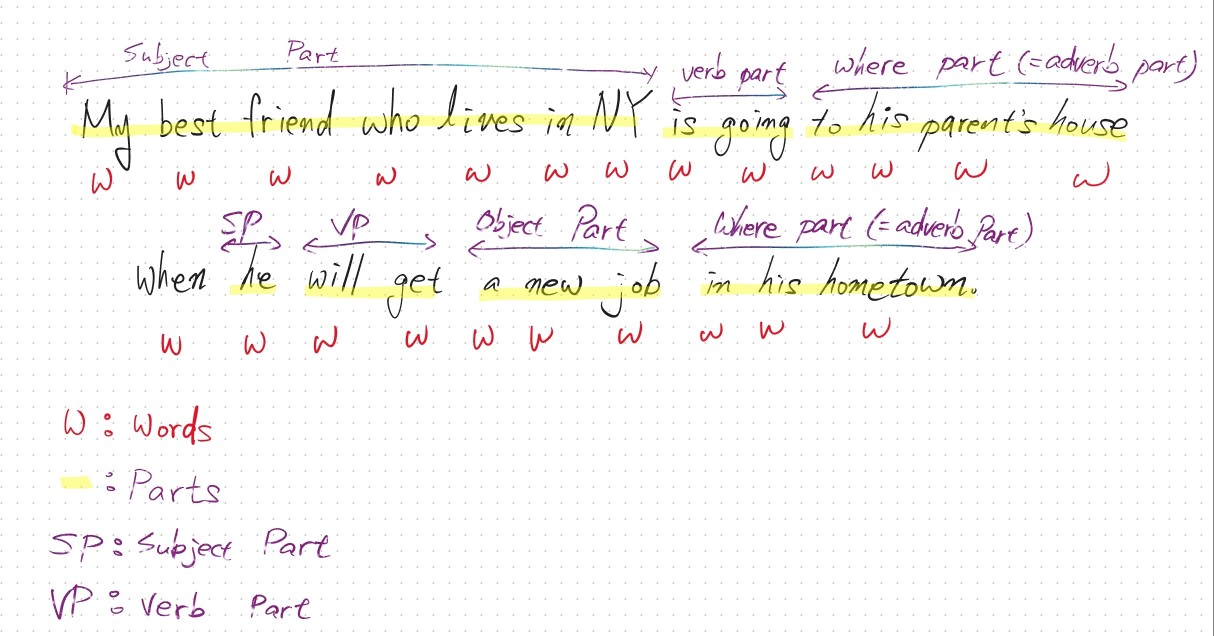 Subject Part verb part where part (=adverb part)
My best friend who lives in NY is going to his parent's house
W W W W W W W W W W W W W
SP VP Object Part Where part (=adverb Part)
when he will get a new job in his hometown.
W W W W W W W W W W
W : Words
: Parts
SP : Subject Part
VP : Verb Part